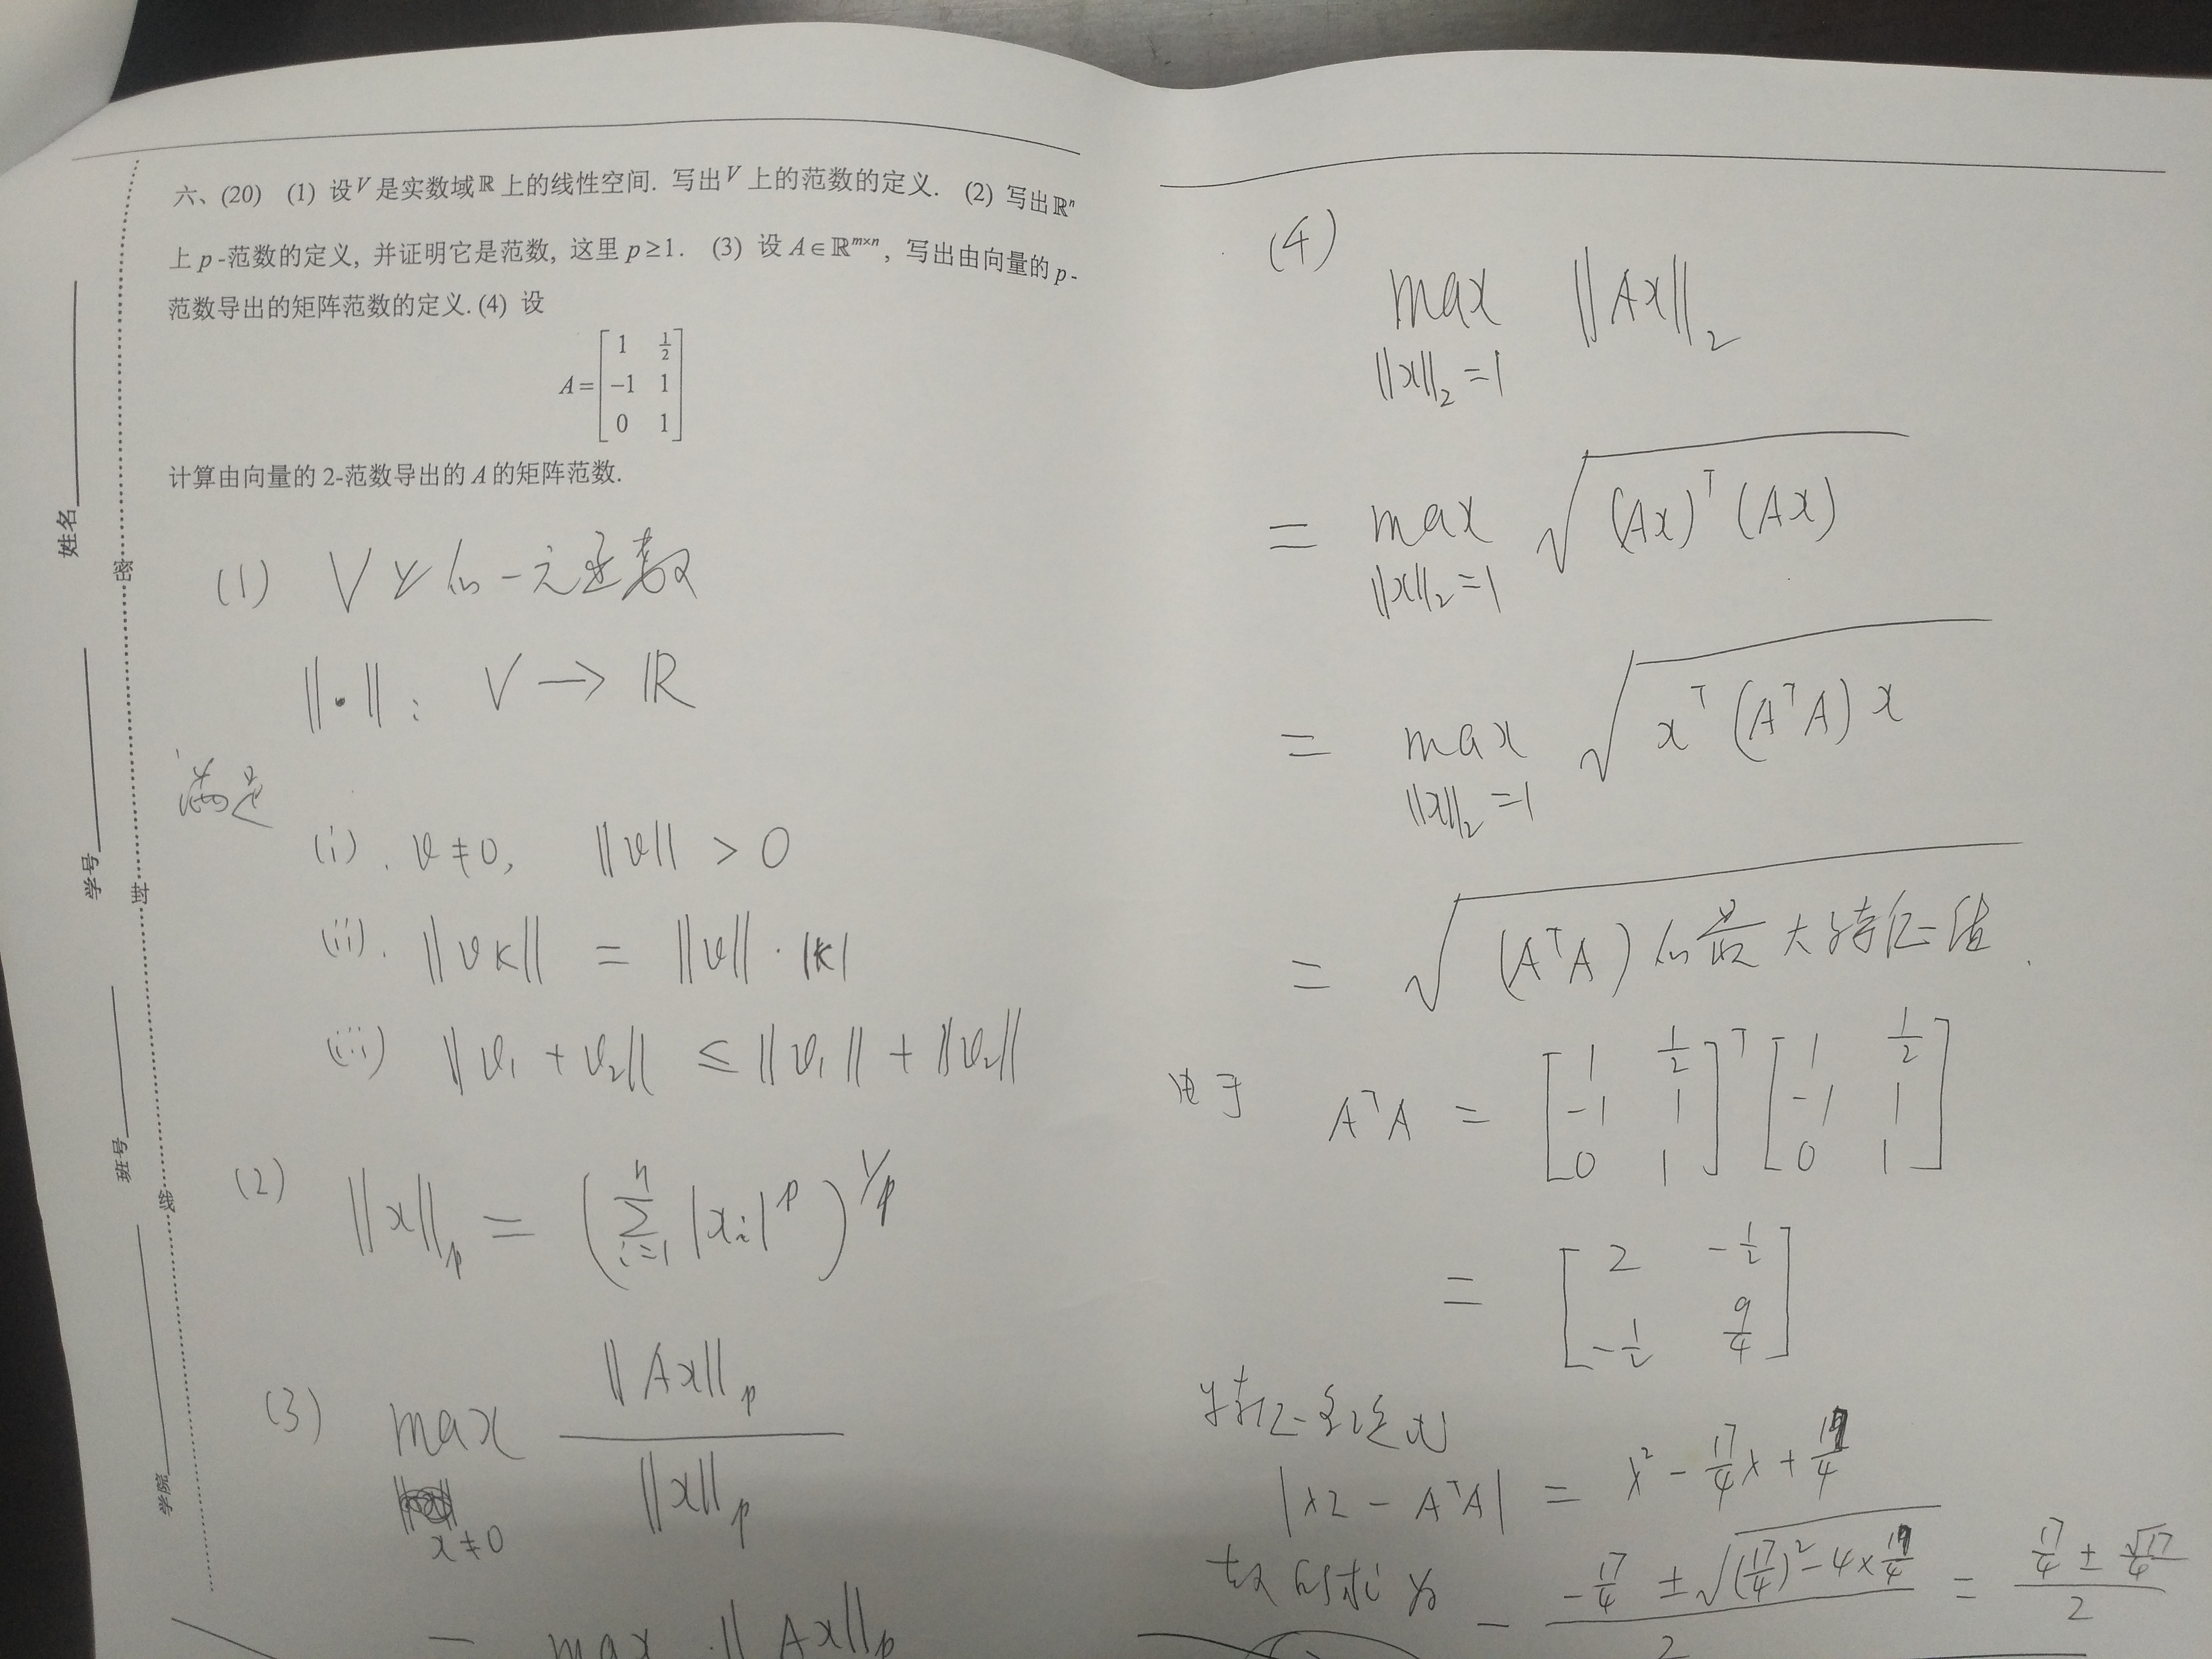 六、(20) (1) 设 V 是实数域 ℝ 上的线性空间. 写出 V 上的范数的定义. (2) 写出 ℝⁿ
上 p-范数的定义, 并证明它是范数, 这里 p≥1. (3) 设 A∈ℝ^{m×n}, 写出由向量的 p-
范数导出的矩阵范数的定义. (4) 设
A= [ 1 1/2
-1 1
0 1 ]
计算由向量的 2-范数导出的 A 的矩阵范数.
姓名
学号
班号
学院
密
封
线
(1) V 上的一元函数
||•|| : V → ℝ
满足
(i). v≠0, ||v|| > 0
(ii). ||vk|| = ||v||·|k|
(iii) ||v₁ + v₂|| ≤ ||v₁|| + ||v₂||
(2) ||x||_p = (∑_{i=1}^{n} |x_i|^p)^{1/p}
(3) max_{x≠0} ||Ax||_p / ||x||_p
= max ||Ax||_p
(4)
max_{||x||₂=1} ||Ax||₂
= max_{||x||₂=1} √((Ax)^T (Ax))
= max_{||x||₂=1} √(x^T (A^T A) x)
= √((A^T A) 的最大特征值) .
由于 A^T A = [ 1 1/2
-1 1
0 1 ]^T [ 1 1/2
-1 1
0 1 ]
= [ 2 -1/2
-1/2 9/4 ]
特征多项式
|λI - A^T A| = λ² - 17/4 λ + 17/4
故所求为 -(-17/4 ± √((17/4)² - 4×17/4))/2 = (17/4 ± √17/4)/2